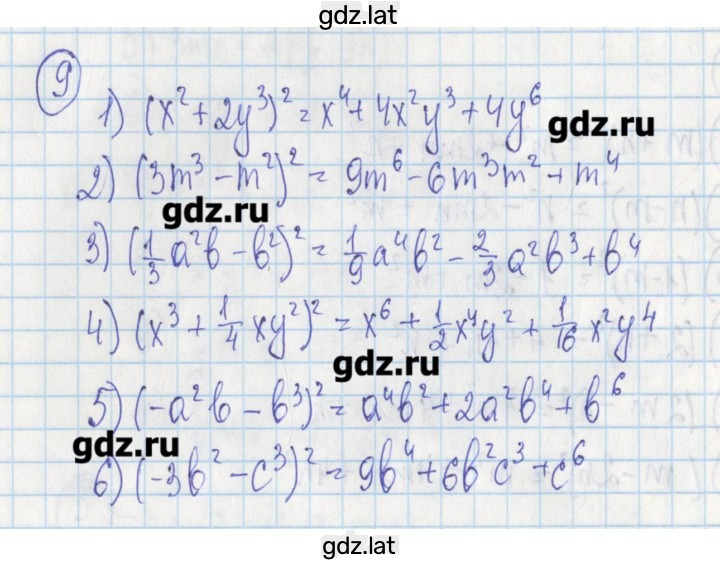 gdz.lat
9
1) (x² + 2y³)² = x⁴ + 4x²y³ + 4y⁶
gdz.ru
2) (3m³ − m²)² = 9m⁶ − 6m³m² + m⁴
gdz.ru
3) (1/3 a²b − b²)² = 1/9 a⁴b² − 2/3 a²b³ + b⁴
4) (x³ + 1/4 xy²)² = x⁶ + 1/2 x⁴y² + 1/16 x²y⁴
gdz.ru
5) (−a²b − b³)² = a⁴b² + 2a²b⁴ + b⁶
gdz.ru
6) (−3b² − c³)² = 9b⁴ + 6b²c³ + c⁶
gdz.lat